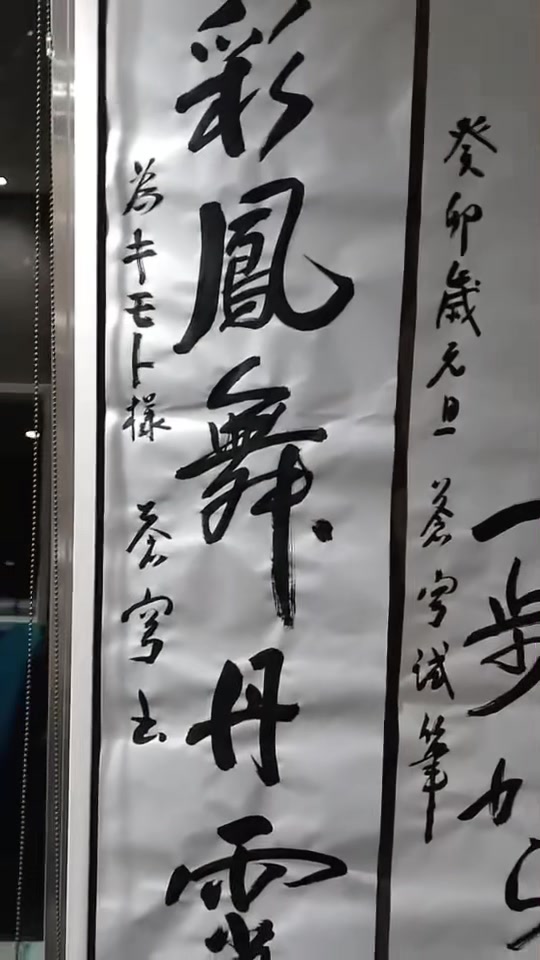 一歩か
癸卯歳元旦 蒼穹試筆
彩鳳舞丹霄
為キモト様 蒼穹書